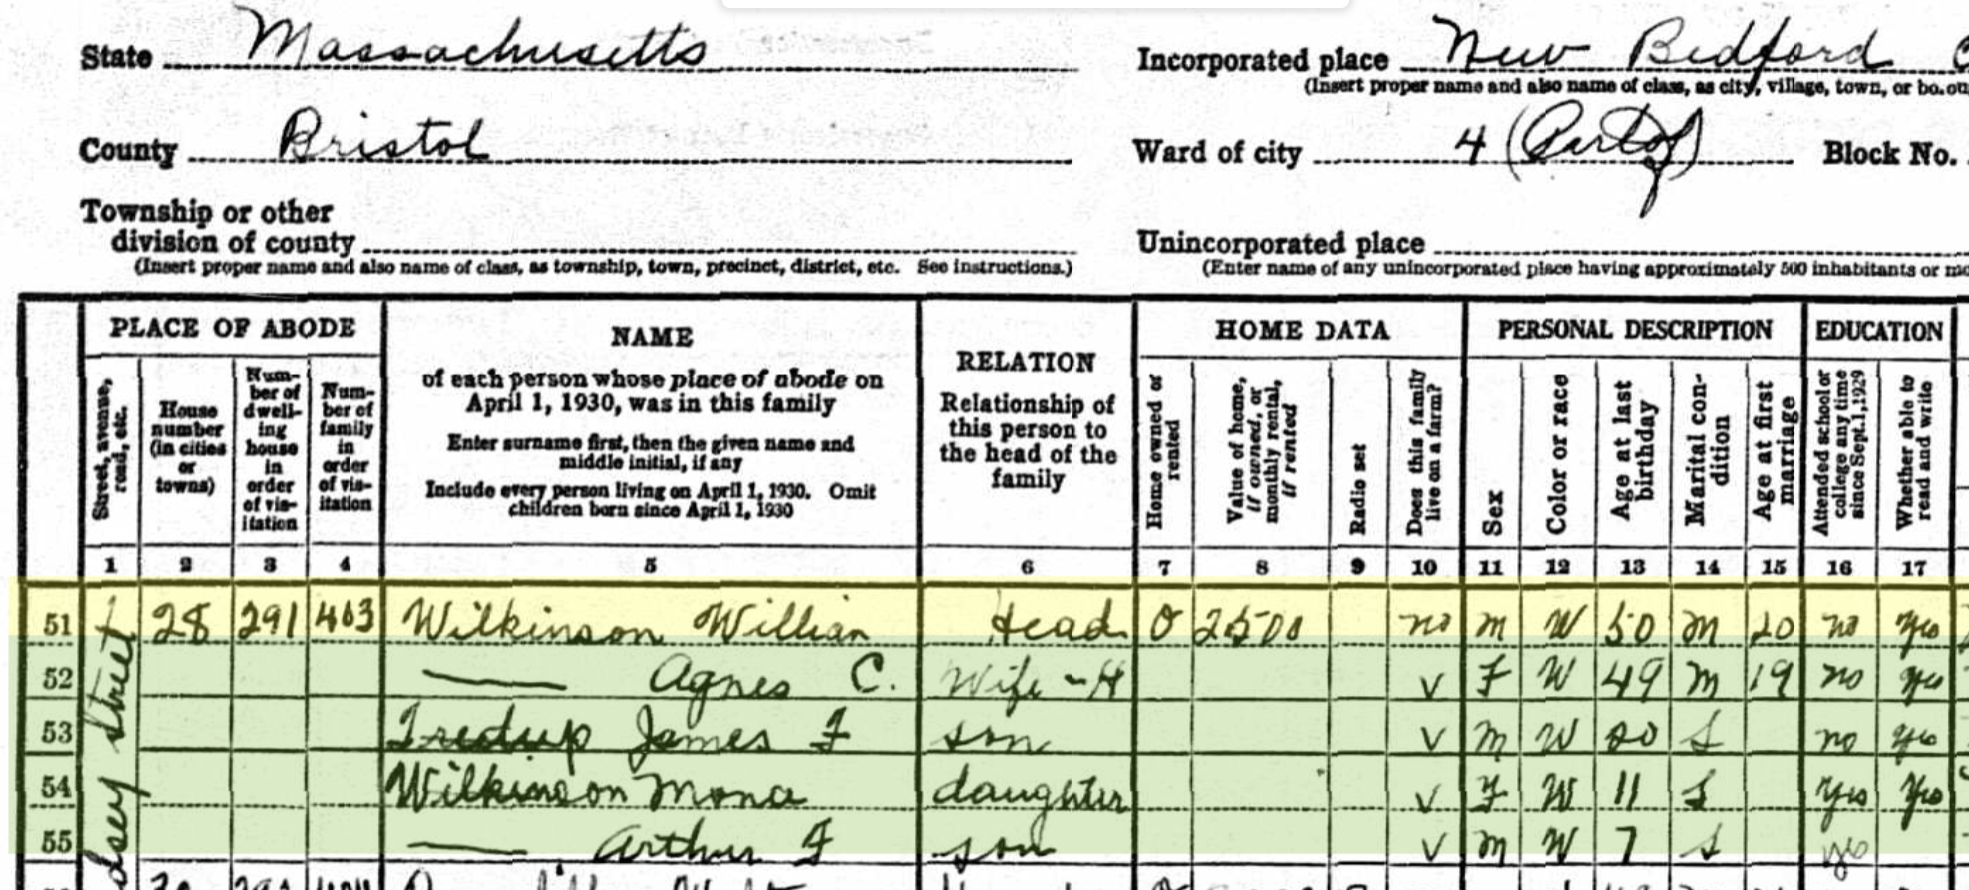 State Massachusetts
Incorporated place New Bedford C
(Insert proper name and also name of class, as city, village, town, or bo.ou
County Bristol
Ward of city 4 (Part of) Block No.
Township or other
division of county
(Insert proper name and also name of class, as township, town, precinct, district, etc. See instructions.)
Unincorporated place
(Enter name of any unincorporated place having approximately 500 inhabitants or mo
PLACE OF ABODE
Street, avenue, road, etc.
House number (in cities or towns)
Num- ber of dwell- ing house in order of vis- itation
Num- ber of family in order of vis- itation
NAME
of each person whose place of abode on
April 1, 1930, was in this family
Enter surname first, then the given name and
middle initial, if any
Include every person living on April 1, 1930. Omit
children born since April 1, 1930
RELATION
Relationship of
this person to
the head of the
family
HOME DATA
Home owned or rented
Value of home, if owned, or monthly rental, if rented
Radio set
Does this family live on a farm?
PERSONAL DESCRIPTION
Sex
Color or race
Age at last birthday
Marital con- dition
Age at first marriage
EDUCATION
Attended school or college any time since Sept. 1, 1929
Whether able to read and write
1 2 3 4 5 6 7 8 9 10 11 12 13 14 15 16 17
51 28 291 403 Wilkinson William Head O 2500 no M W 50 M 20 no yes
52 —— Agnes C. Wife-H v F W 49 M 19 no yes
53 Tredup James F son v M W 20 S no yes
54 Wilkinson Mona daughter v F W 11 S yes yes
55 —— Arthur F son v M W 7 S yes
dsey Street